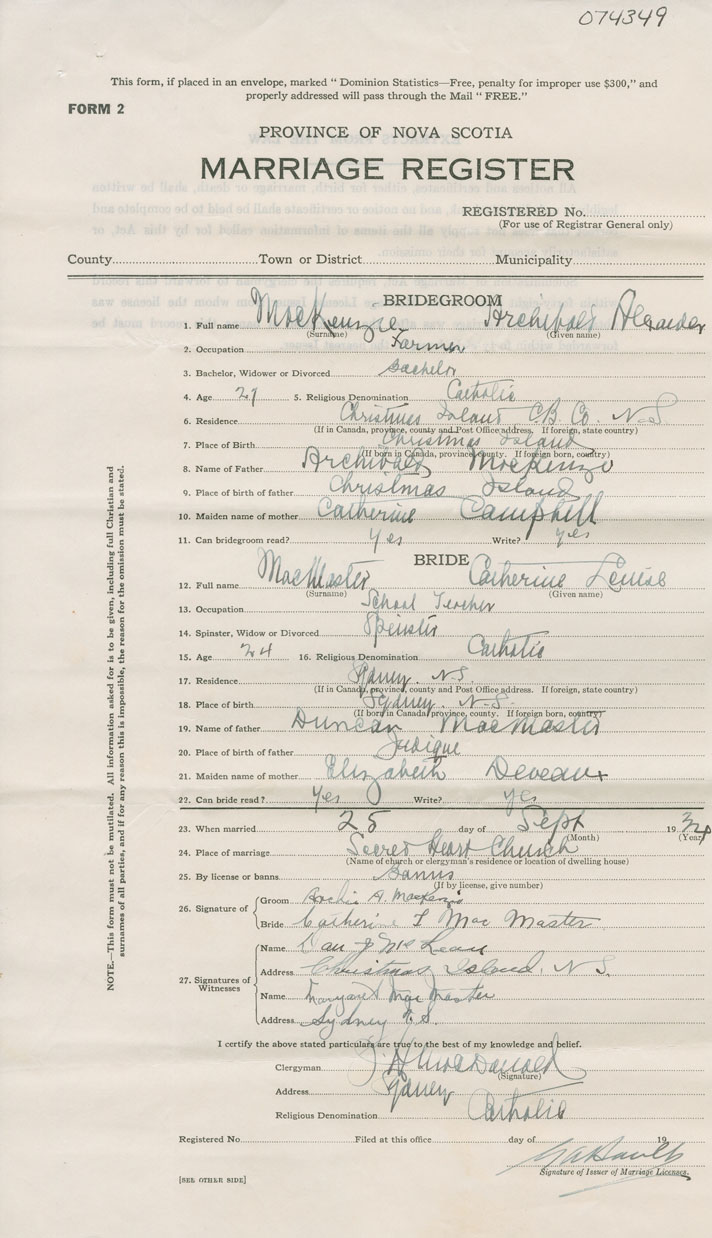 074349
This form, if placed in an envelope, marked " Dominion Statistics—Free, penalty for improper use $300," and
properly addressed will pass through the Mail " FREE."
FORM 2
PROVINCE OF NOVA SCOTIA
MARRIAGE REGISTER
REGISTERED No.
(For use of Registrar General only)
County Town or District Municipality
BRIDEGROOM
1. Full name MacKenzie Archibald Alexander
(Surname) (Given name)
2. Occupation Farmer
3. Bachelor, Widower or Divorced Bachelor
4. Age 29 5. Religious Denomination Catholic
6. Residence Christmas Island C.B. Co. N.S
(If in Canada, province, county and Post Office address. If foreign, state country)
7. Place of Birth Christmas Island
(If born in Canada, province, county. If foreign born, country)
8. Name of Father Archibald MacKenzie
9. Place of birth of father Christmas Island
10. Maiden name of mother Catherine Campbell
11. Can bridegroom read? Yes Write? yes
BRIDE
12. Full name MacMaster Catherine Louise
(Surname) (Given name)
13. Occupation School Teacher
14. Spinster, Widow or Divorced Spinster
15. Age 24 16. Religious Denomination Catholic
17. Residence Sydney. N.S.
(If in Canada, province, county and Post Office address. If foreign, state country)
18. Place of birth Sydney. N.S.
(If born in Canada, province, county. If foreign born, country)
19. Name of father Duncan MacMaster
20. Place of birth of father Judique
21. Maiden name of mother Elizabeth Deveaux
22. Can bride read? Yes Write? yes
23. When married 25 day of Sept 19
(Month) (Year)
24. Place of marriage Sacred Heart Church
(Name of church or clergyman's residence or location of dwelling house)
25. By license or banns Banns
(If by license, give number)
26. Signature of Groom Archie A. MacKenzie
Bride Catherine L Mac Master
27. Signatures of Witnesses Name Dan J McLean
Address Christmas Island, N S.
Name Margaret MacMaster
Address Sydney N.S.
I certify the above stated particulars are true to the best of my knowledge and belief.
Clergyman MacDonald
(Signature)
Address Sydney
Religious Denomination Catholic
Registered No. Filed at this office day of 19
Signature of Issuer of Marriage Licenses.
[SEE OTHER SIDE]
NOTE.—This form must not be mutilated. All information asked for is to be given, including full Christian and
surnames of all parties, and if for any reason this is impossible, the reason for the omission must be stated.